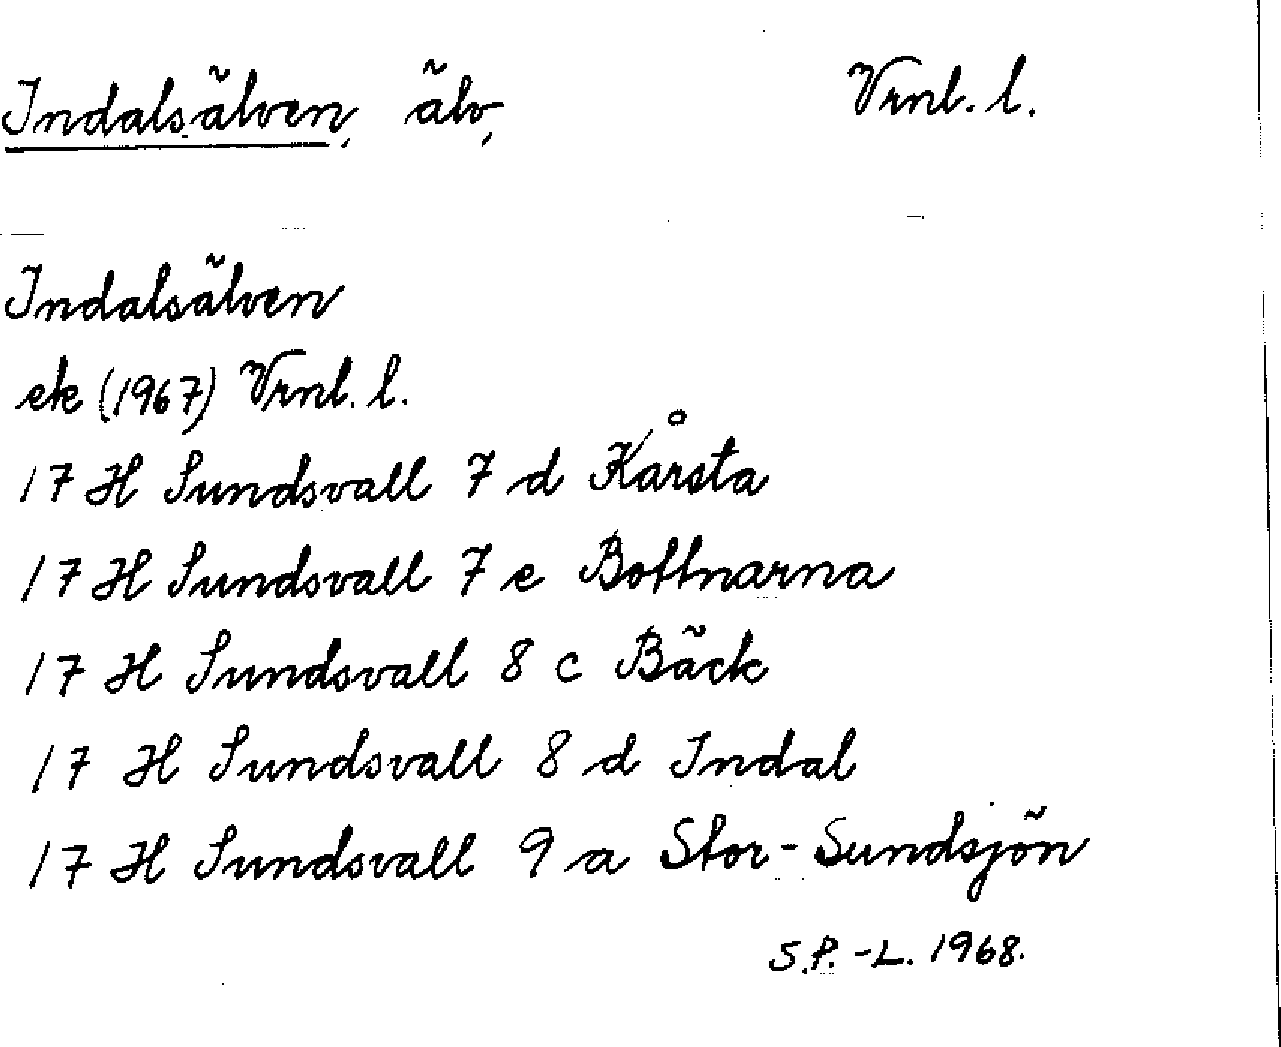 Indalsälven, älv, Vrnl. l.
Indalsälven
ek (1967) Vrnl. l.
17 H Sundsvall 7 d Kårsta
17 H Sundsvall 7 e Bottnarna
17 H Sundsvall 8 c Bäck
17 H Sundsvall 8 d Indal
17 H Sundsvall 9 a Stor-Sundsjön
S.P.-L. 1968.